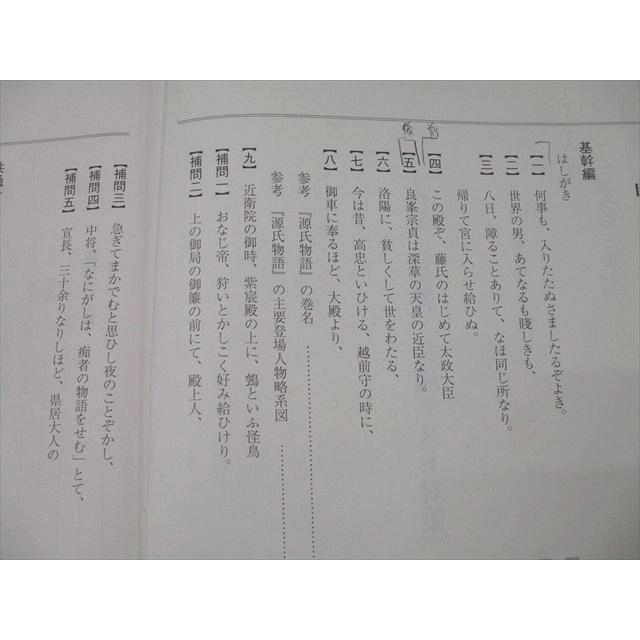 基幹編
はしがき
【一】 何事も、入りたたぬさましたるぞよき。
【二】 世界の男、あてなるも賤しきも、
【三】 八日、障ることありて、なほ同じ所なり。
帰りて宮に入らせ給ひぬ。
【四】 この殿ぞ、藤氏のはじめて太政大臣
【五】 良峯宗貞は深草の天皇の近臣なり。
【六】 洛陽に、貧しくして世をわたる、
【七】 今は昔、高忠といひける、越前守の時に、
【八】 御車に奉るほど、大殿より、
参考 『源氏物語』の巻名
参考 『源氏物語』の主要登場人物略系図
【九】 近衛院の御時、紫宸殿の上に、鵼といふ怪鳥
【補問一】 おなじ帝、狩いとかしこく好み給ひけり。
【補問二】 上の御局の御簾の前にて、殿上人、
【補問三】 急ぎてまかでむと思ひし夜のことぞかし、
【補問四】 中将、「なにがしは、痴者の物語をせむ」とて、
【補問五】 宣長、三十余りなりしほど、県居大人の